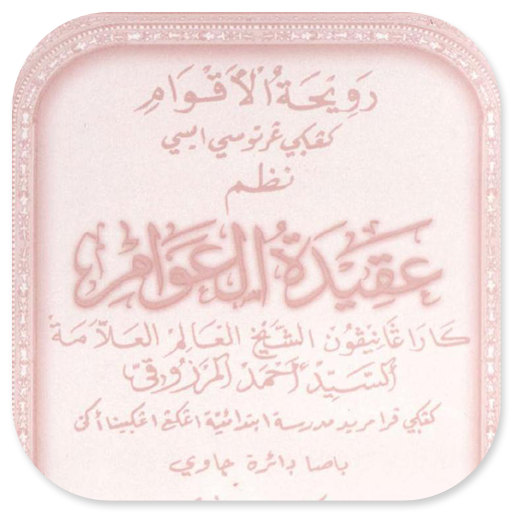 رَوِيْحَةُ الْأَقْوَامِ
كڠكي غرتوسي ايسي
نظم
عَقِيْدَةُ الْعَوَامْ
كَارَاڠَانِيڤُونْ الشَّيْخُ الْعَالِمْ الْعَلَّامَةْ
السَّيِّدْ أَحْمَدْ الْمَرْزُوقِي
كڠكي فرا مريد مدرسة ابتدائيّة
باصا دائرة جاوي